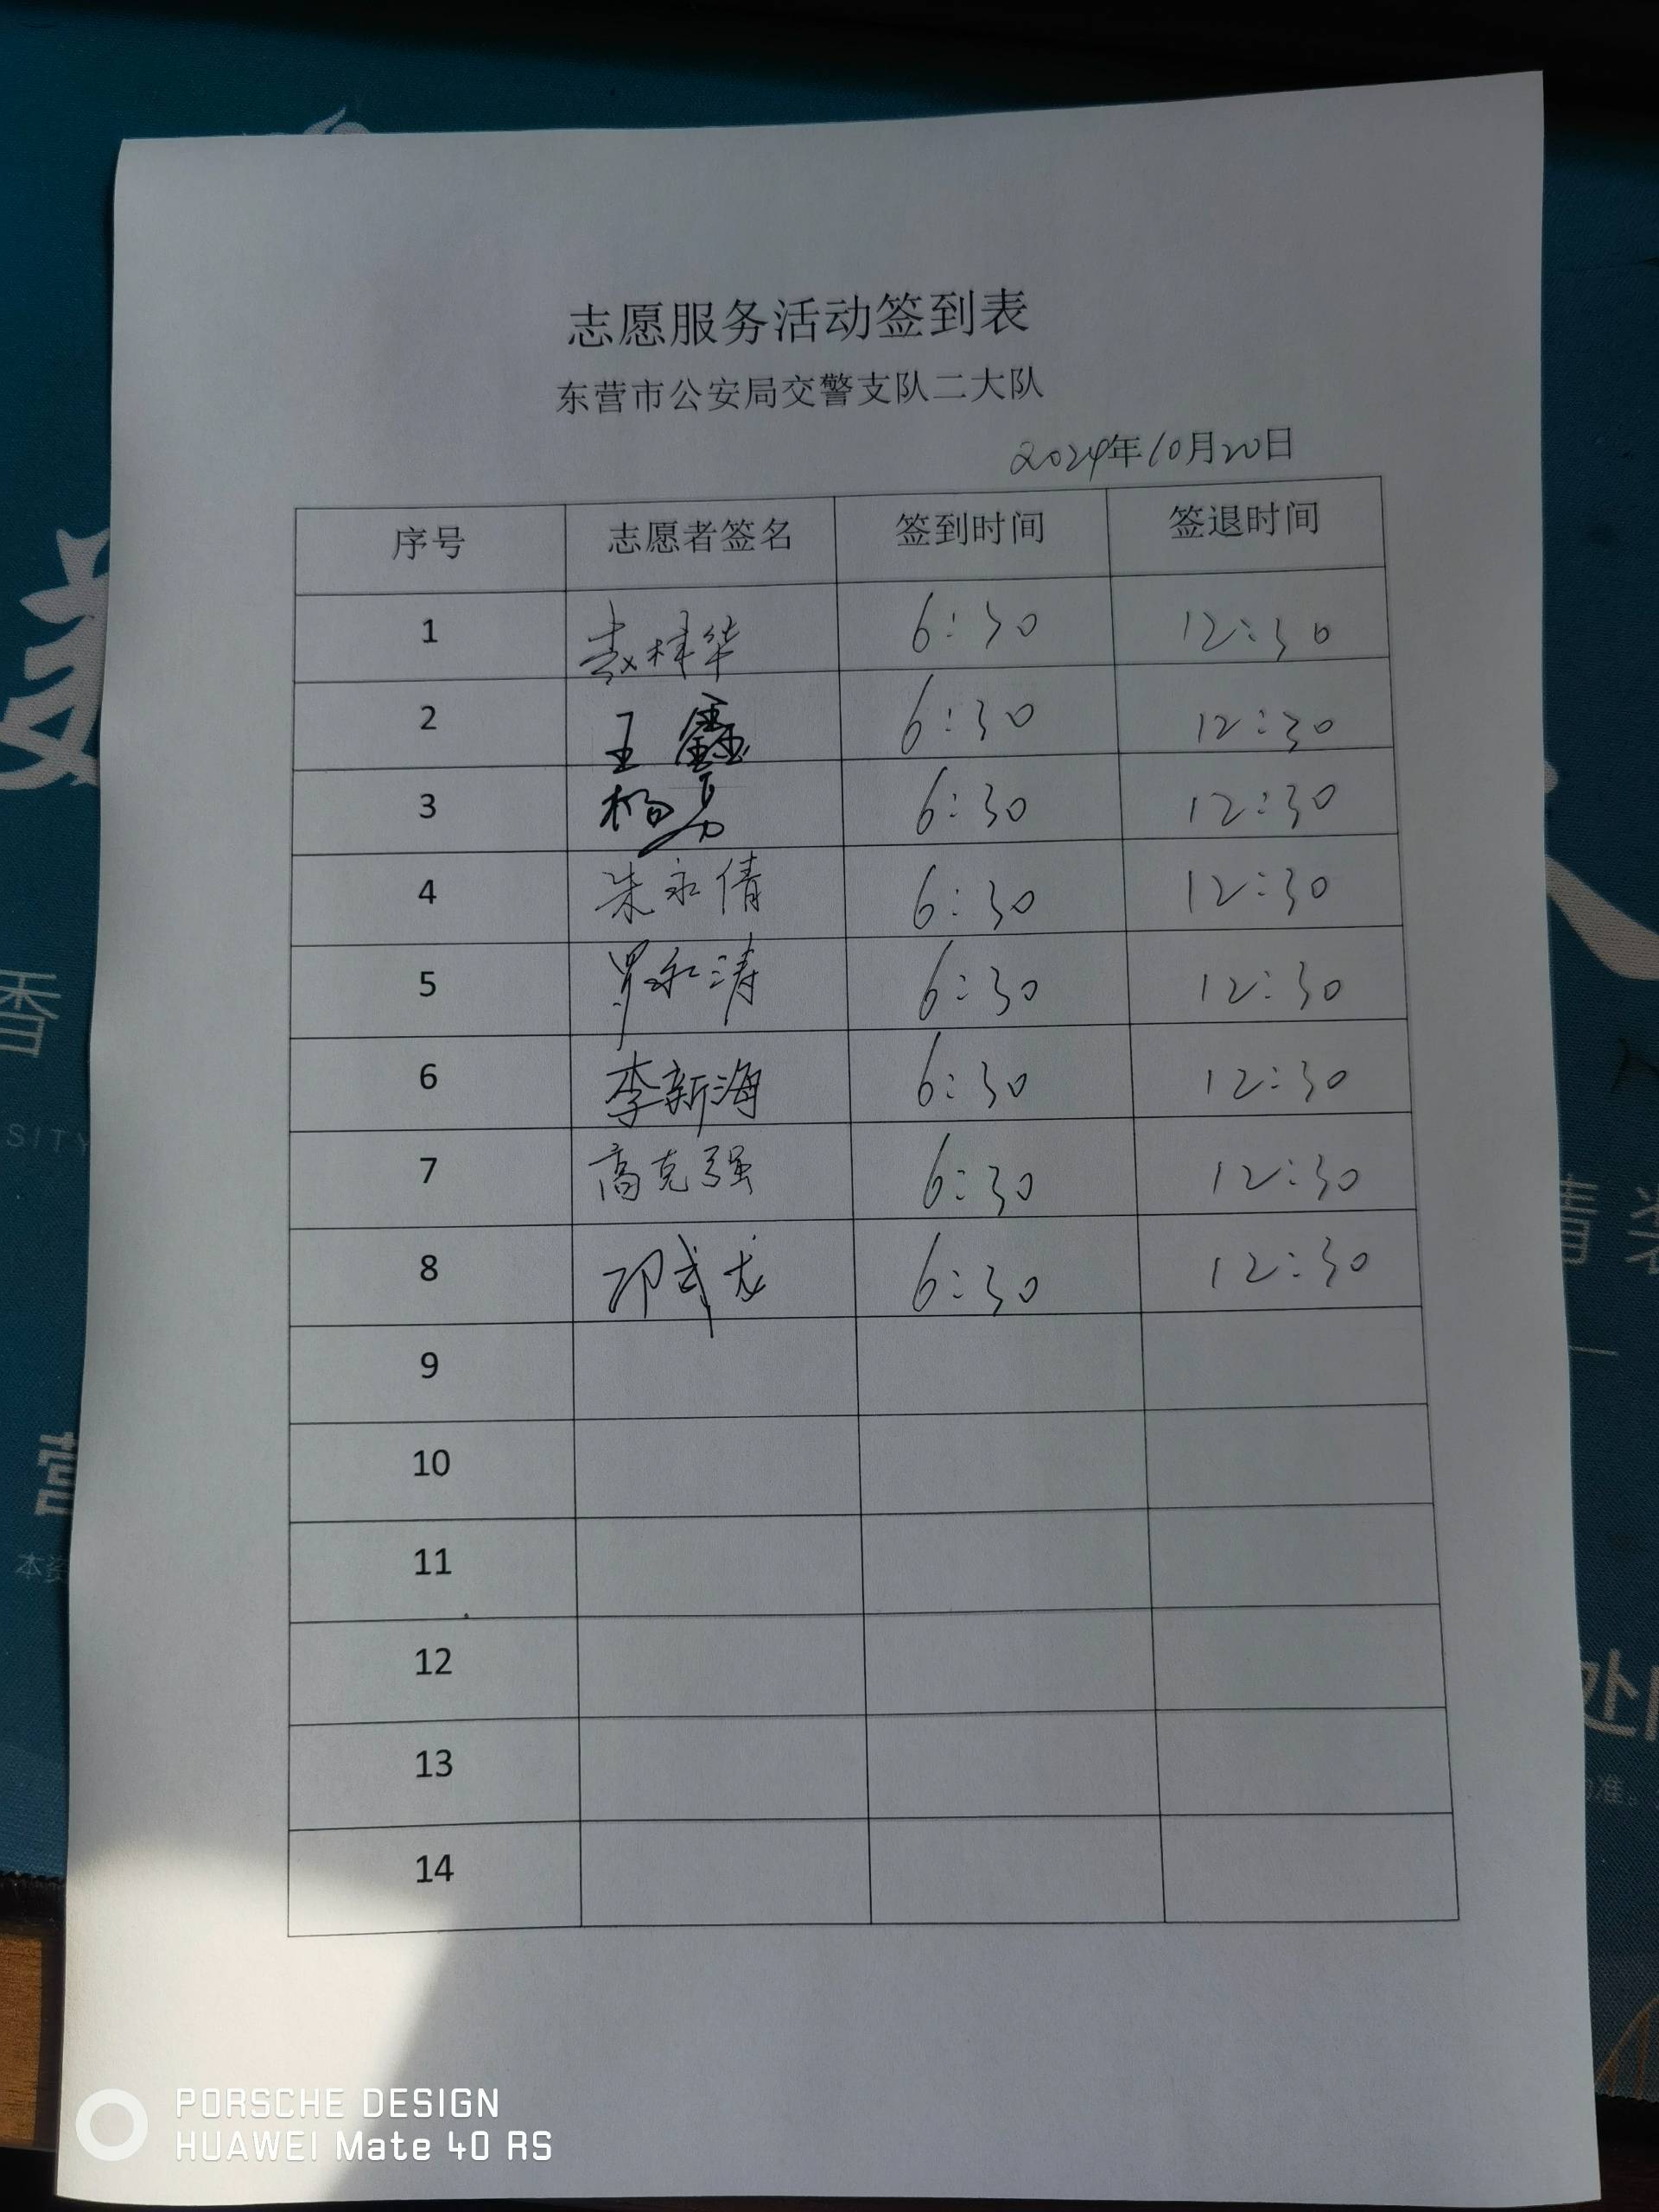 志愿服务活动签到表
东营市公安局交警支队二大队
2024年10月20日
序号 志愿者签名 签到时间 签退时间
1 6:30 12:30
2 王鑫 6:30 12:30
3 杨勇 6:30 12:30
4 朱永倩 6:30 12:30
5 罗永涛 6:30 12:30
6 李新海 6:30 12:30
7 高克强 6:30 12:30
8 邓武龙 6:30 12:30
9
10
11
12
13
14
香
SITY
营
本资
情
处
准。
PORSCHE DESIGN
HUAWEI Mate 40 RS